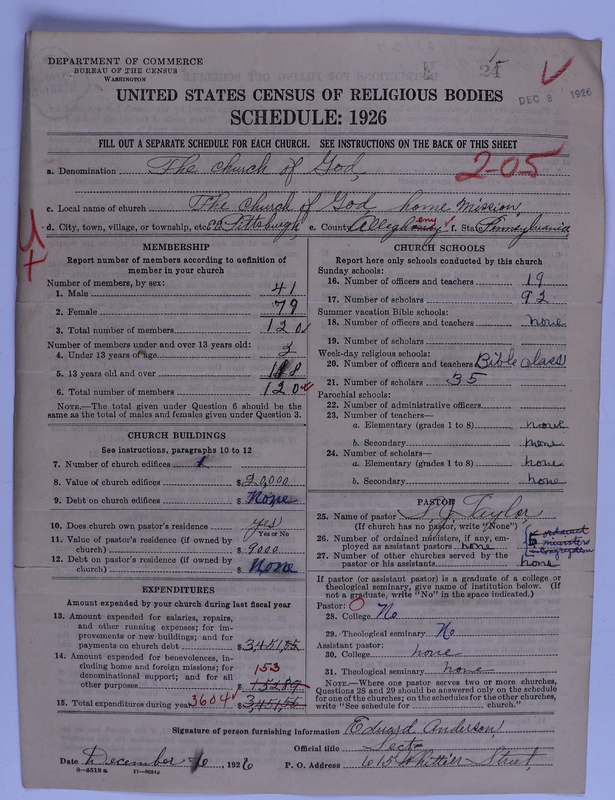 DEPARTMENT OF COMMERCE
BUREAU OF THE CENSUS
WASHINGTON
DEC 8 1926
UNITED STATES CENSUS OF RELIGIOUS BODIES
SCHEDULE: 1926
FILL OUT A SEPARATE SCHEDULE FOR EACH CHURCH. SEE INSTRUCTIONS ON THE BACK OF THIS SHEET
a. Denomination The church of God,
2-05
c. Local name of church The church of God home Mission,
d. City, town, village, or township, etc. Pittsburgh, e. County Allegheny f. State Pennsylvania
MEMBERSHIP
Report number of members according to definition of
member in your church
Number of members, by sex:
1. Male 41
2. Female 79
3. Total number of members 120
Number of members under and over 13 years old:
4. Under 13 years of age
5. 13 years old and over 118
6. Total number of members 120
NOTE.—The total given under Question 6 should be the
same as the total of males and females given under Question 3.
CHURCH BUILDINGS
See instructions, paragraphs 10 to 12
7. Number of church edifices 1
8. Value of church edifices $20,000
9. Debt on church edifices $None
10. Does church own pastor's residence yes
Yes or No
11. Value of pastor's residence (if owned by
church) $9000
12. Debt on pastor's residence (if owned by
church) $None
EXPENDITURES
Amount expended by your church during last fiscal year
13. Amount expended for salaries, repairs,
and other running expenses; for im-
provements or new buildings; and for
payments on church debt $3,451,55
14. Amount expended for benevolences, in-
cluding home and foreign missions; for
denominational support; and for all
other purposes 153 $152.89
15. Total expenditures during year 3604 $3,451,55
CHURCH SCHOOLS
Report here only schools conducted by this church
Sunday schools:
16. Number of officers and teachers 19
17. Number of scholars 92
Summer vacation Bible schools:
18. Number of officers and teachers none
19. Number of scholars
Week-day religious schools:
20. Number of officers and teachers Bible class
21. Number of scholars 35
Parochial schools:
22. Number of administrative officers
23. Number of teachers—
a. Elementary (grades 1 to 8) none
b. Secondary none
24. Number of scholars—
a. Elementary (grades 1 to 8) none
b. Secondary none
PASTOR
25. Name of pastor S. J. Taylor
(If church has no pastor, write "None")
26. Number of ordained ministers, if any, em-
ployed as assistant pastors none
5 ordained ministers in congregation
27. Number of other churches served by the
pastor or his assistants none
If pastor (or assistant pastor) is a graduate of a college or
theological seminary, give name of institution below. (If
not a graduate, write "No" in the space indicated.)
Pastor:
28. College No
29. Theological seminary No
Assistant pastor:
30. College none
31. Theological seminary none
NOTE.—Where one pastor serves two or more churches,
Questions 28 and 29 should be answered only on the schedule
for one of the churches; on the schedules for the other churches,
write "See schedule for church."
Signature of person furnishing information Edward Anderson
Official title Sect
Date December 6, 1926 P. O. Address 615 Whittier Street
8-5518 a 11-9024z